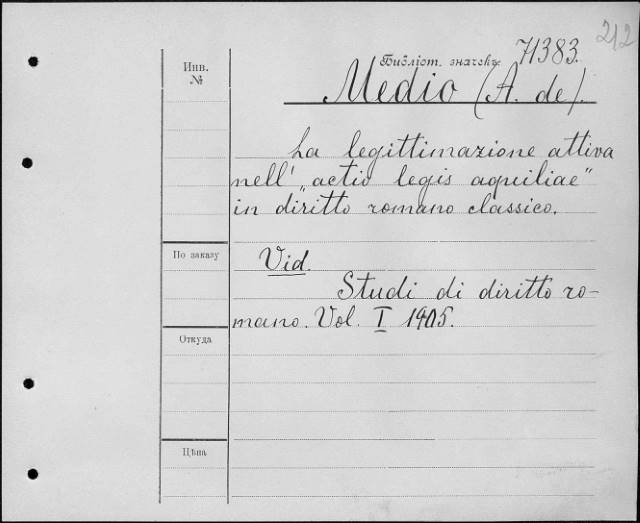 212
Библіот. значекъ 71383.
Инв.
№
Medio (A. de).
La legittimazione attiva
nell' „actio legis aquiliae"
in diritto romano classico.
По заказу
Vid.
Studi di diritto ro-
mano. Vol. I 1905.
Откуда
Цѣна